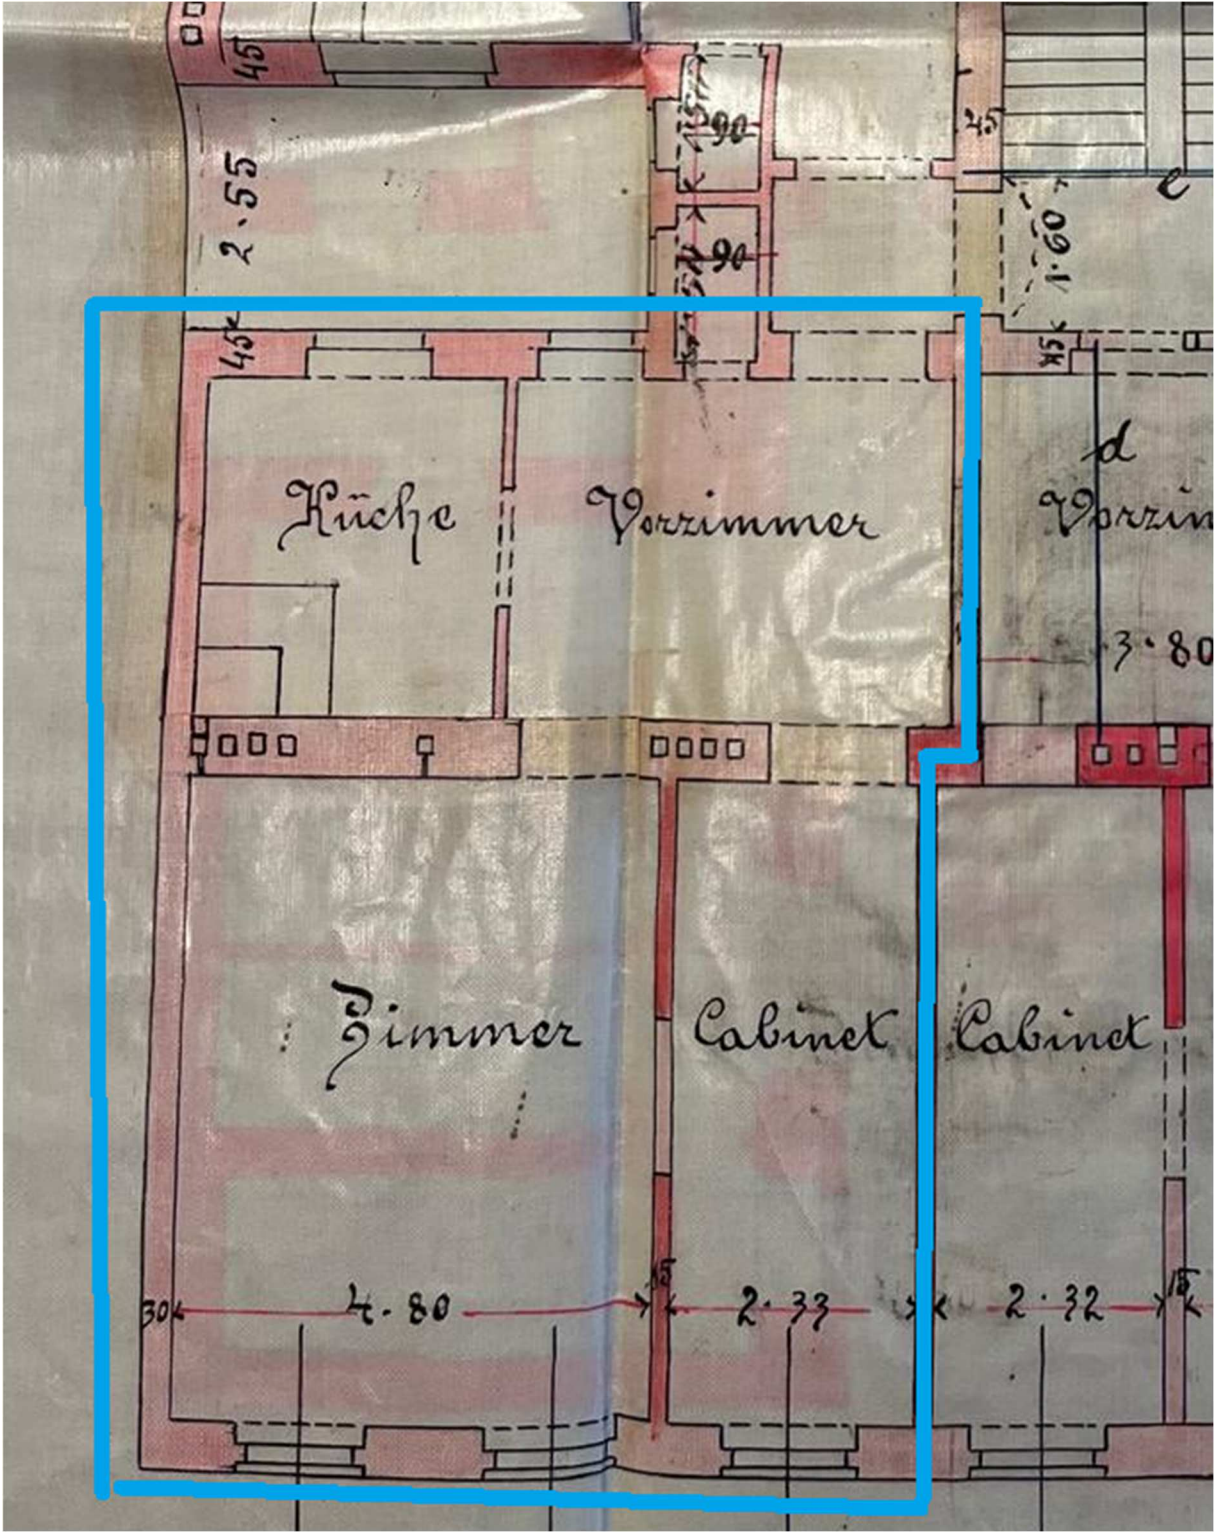 45
2·55
90
90
45
e
1·60
45
45
d
Küche
Vorzimmer
Vorzim
3·80
Zimmer
Cabinet
Cabinet
30
4·80
15
2·33
2·32
15